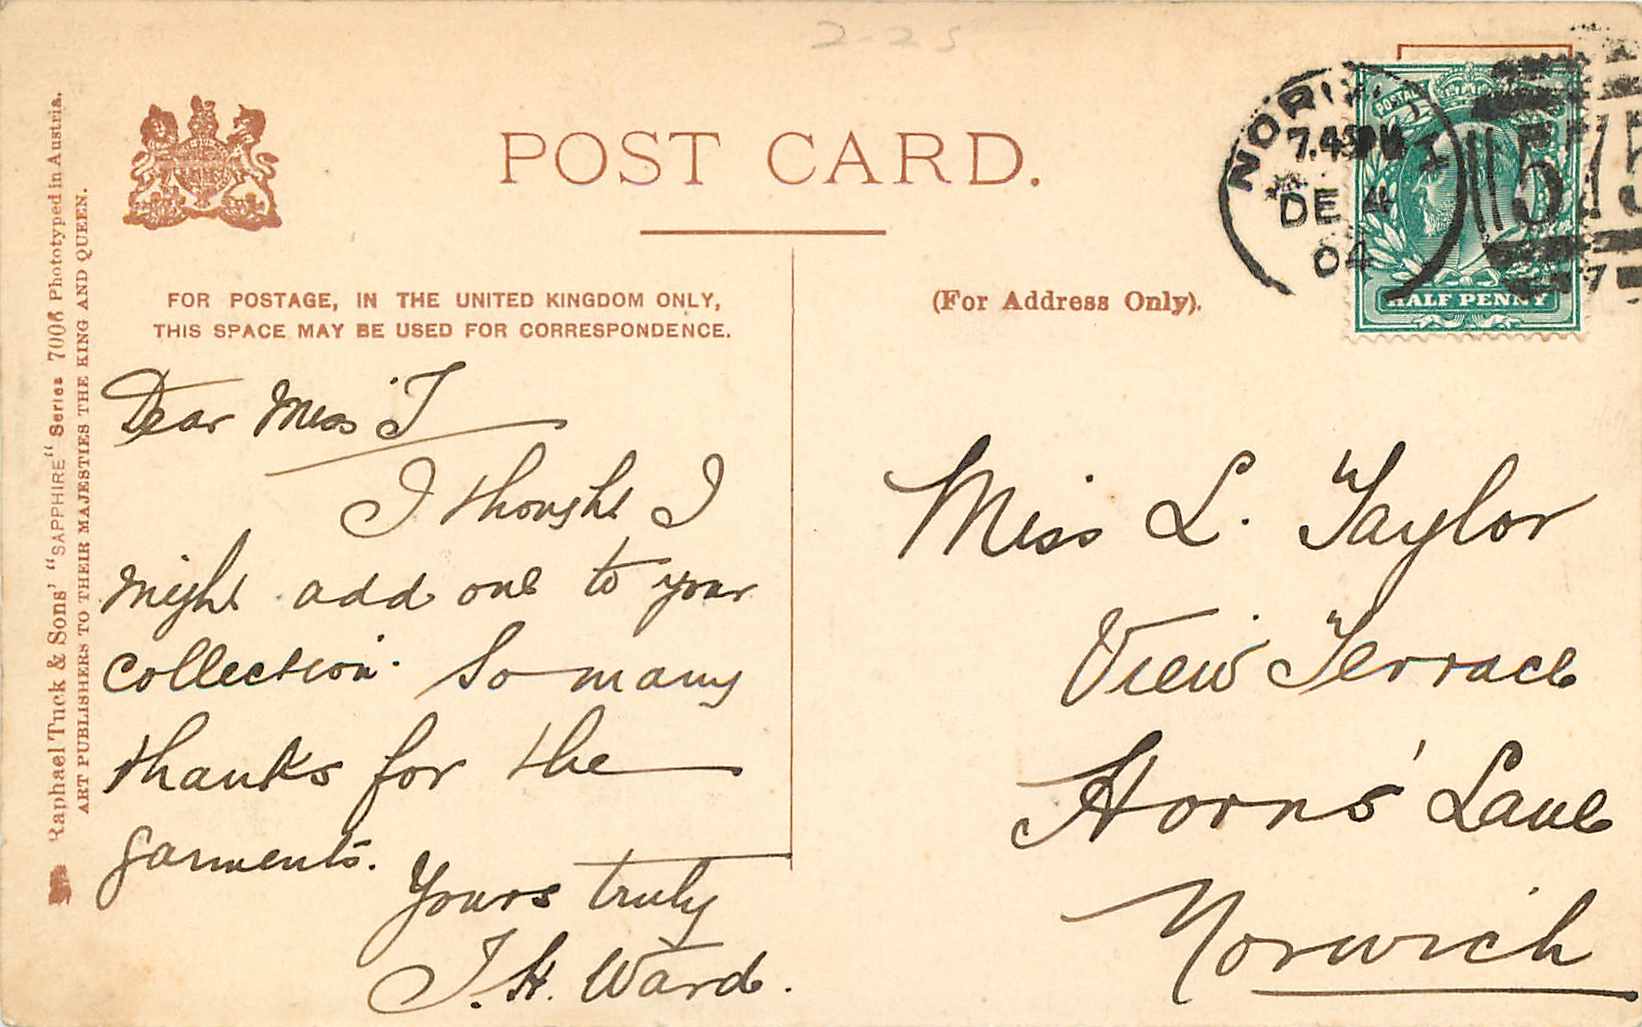 2-25
POST CARD.
FOR POSTAGE, IN THE UNITED KINGDOM ONLY,
THIS SPACE MAY BE USED FOR CORRESPONDENCE.
(For Address Only).
Raphael Tuck & Sons' "SAPPHIRE" Series 7008 Phototyped in Austria.
ART PUBLISHERS TO THEIR MAJESTIES THE KING AND QUEEN.
POSTAGE
HALF PENNY
NORWICH
7.45PM
DE 4
04
575
Dear Miss T
I thought I
might add one to your
collection. So many
thanks for the
garments.
Yours truly
J. H. Ward.
Miss L. Taylor
View Terrace
Horns' Lane
Norwich